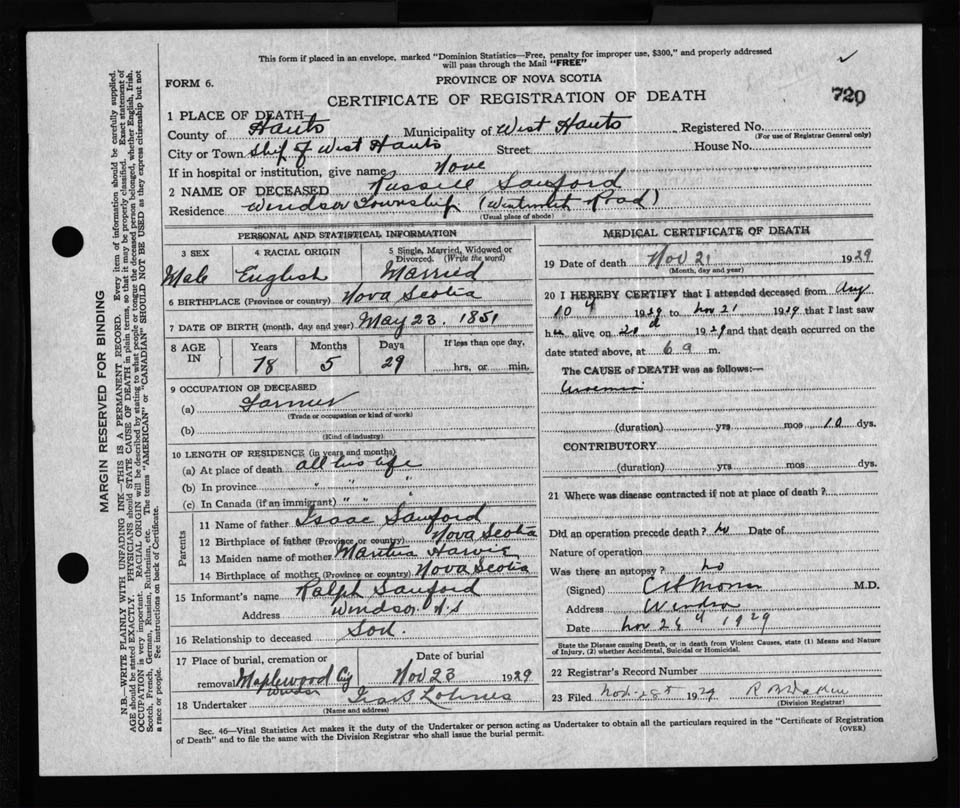 This form if placed in an envelope, marked "Dominion Statistics—Free, penalty for improper use, $300," and properly addressed
will pass through the Mail "FREE"
FORM 6.
PROVINCE OF NOVA SCOTIA
CERTIFICATE OF REGISTRATION OF DEATH
720
1 PLACE OF DEATH
County of Hants Municipality of West Hants Registered No.
(For use of Registrar General only)
City or Town Ship of West Hants Street House No.
If in hospital or institution, give name None
2 NAME OF DECEASED Russell Sanford
Residence Windsor Township (Wentworth Road)
(Usual place of abode)
PERSONAL AND STATISTICAL INFORMATION
3 SEX 4 RACIAL ORIGIN 5 Single, Married, Widowed or Divorced. (Write the word)
Male English Married
6 BIRTHPLACE (Province or country) Nova Scotia
7 DATE OF BIRTH (month, day and year) May 23. 1851
8 AGE IN Years Months Days If less than one day,
78 5 29 hrs. or min.
9 OCCUPATION OF DECEASED
(a) Farmer
(Trade or occupation or kind of work)
(b)
(Kind of industry)
10 LENGTH OF RESIDENCE (in years and months)
(a) At place of death all his life
(b) In province " " "
(c) In Canada (if an immigrant) " " "
Parents
11 Name of father Isaac Sanford
12 Birthplace of father (Province or country) Nova Scotia
13 Maiden name of mother Martha Harvie
14 Birthplace of mother (Province or country) Nova Scotia
15 Informant's name Ralph Sanford
Address Windsor N.S
16 Relationship to deceased Son.
17 Place of burial, cremation or removal Maplewood Cy Windsor
Date of burial Nov 23 1929
18 Undertaker Lohnes
(Name and address)
MEDICAL CERTIFICATE OF DEATH
19 Date of death Nov 21 1929
(Month, day and year)
20 I HEREBY CERTIFY that I attended deceased from Aug
10 1929 to Nov 21 1929 that I last saw
h alive on 20 1929 and that death occurred on the
date stated above, at 6 a m.
The CAUSE of DEATH was as follows:—
Uraemia
(duration) yrs mos 10 dys.
CONTRIBUTORY
(duration) yrs mos dys.
21 Where was disease contracted if not at place of death?
Did an operation precede death? no Date of
Nature of operation
Was there an autopsy? no
(Signed) M.D.
Address Windsor
Date Nov 1929
State the Disease causing Death, or in death from Violent Causes, state (1) Means and Nature
of Injury, (2) whether Accidental, Suicidal or Homicidal.
22 Registrar's Record Number
23 Filed Nov. 28 1929
(Division Registrar)
Sec. 46—Vital Statistics Act makes it the duty of the Undertaker or person acting as Undertaker to obtain all the particulars required in the "Certificate of Registration
of Death" and to file the same with the Division Registrar who shall issue the burial permit.
(OVER)
MARGIN RESERVED FOR BINDING
N.B.—WRITE PLAINLY WITH UNFADING INK—THIS IS A PERMANENT RECORD. Every item of information should be carefully supplied.
AGE should be stated EXACTLY. PHYSICIANS should STATE CAUSE OF DEATH in plain terms, so that it may be properly classified. Exact statement of
OCCUPATION is very important. RACIAL ORIGIN will be described by stating to what people or tongue the deceased person belonged, whether English, Irish,
Scotch, French, German, Russian, Ruthenian, etc. The terms "AMERICAN" or "CANADIAN" SHOULD NOT BE USED as they express citizenship but not
a race or people. See instructions on back of Certificate.